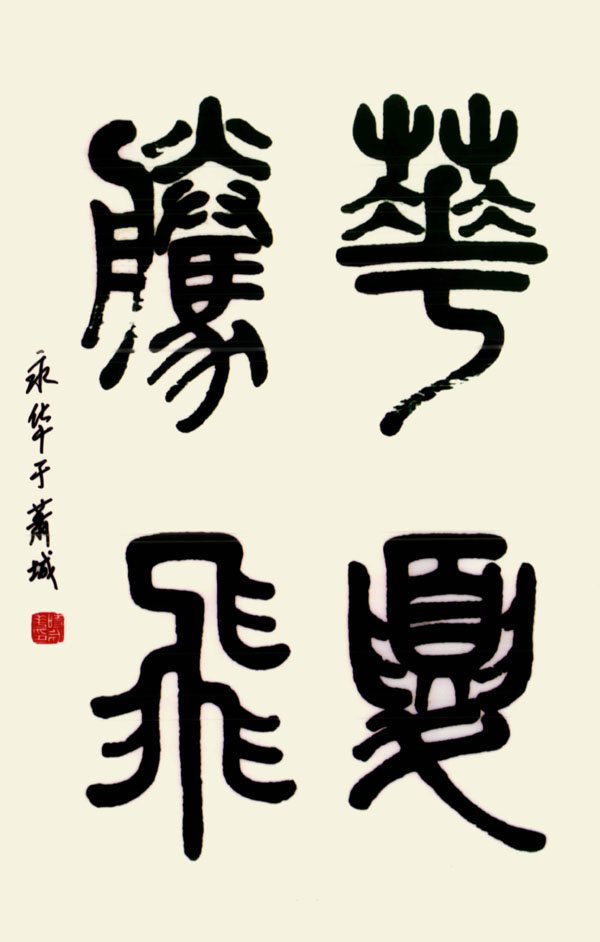 華夏
騰飛
永华于萧城